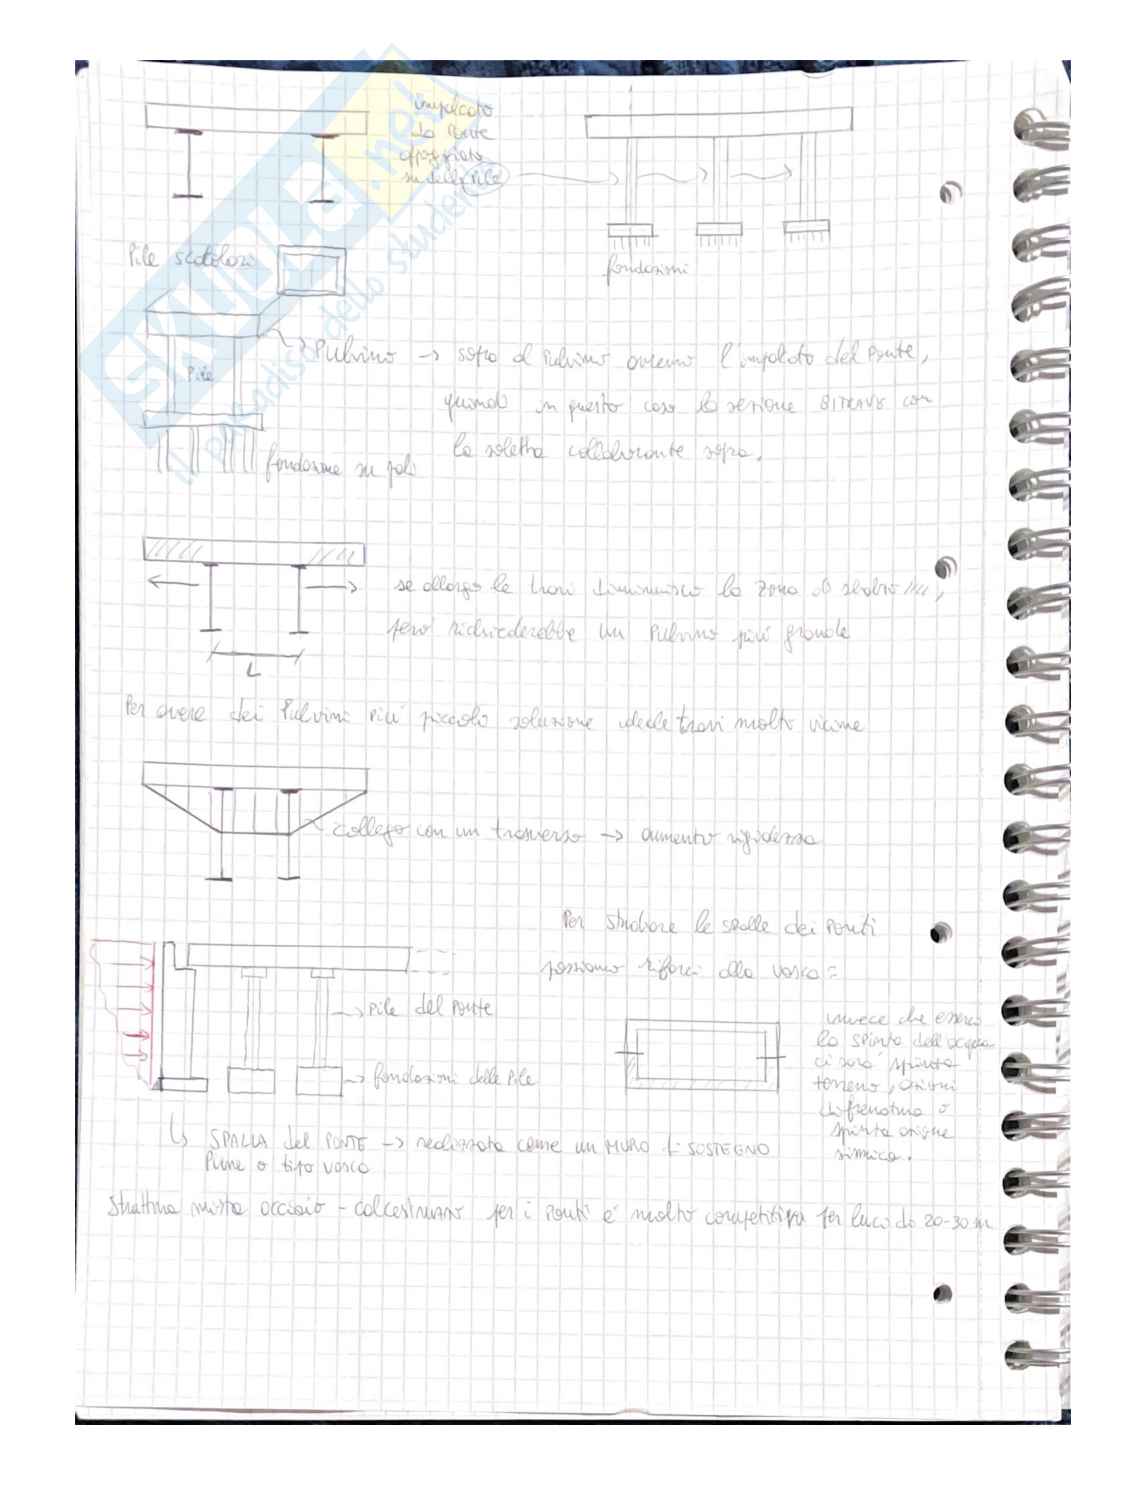 impalcato
da ponte
appoggiato
su delle Pile
fondazioni
Pile scatolare
Pulvino → sopra al Pulvino avremo l'impalcato del Ponte,
Pile
quindi in questo caso la sezione BITRAVE con
la soletta collaborante sopra.
fondazione su pali
se allargo le travi diminuisco la zona di sbalzo ////,
però richiederebbe un Pulvino più grande
L
Per avere dei Pulvini più piccoli soluzione ideale travi molto vicine
collego con un trasverso → aumento rigidezza
Per studiare le spalle dei Ponti
possiamo rifarci alla vasca:
Pile del Ponte
invece che esserci
la spinta dell'acqua
ci sarà spinta
terreno, azioni
di frenatura o
spinta azione
sismica.
fondazioni delle Pile
↳ SPALLA del PONTE → realizzata come un MURO di SOSTEGNO
o tipo vasca
Struttura mista acciaio - calcestruzzo per i Ponti è molto competitiva per luci da 20-30 m
SKUOLA.net
il paradiso dello studente